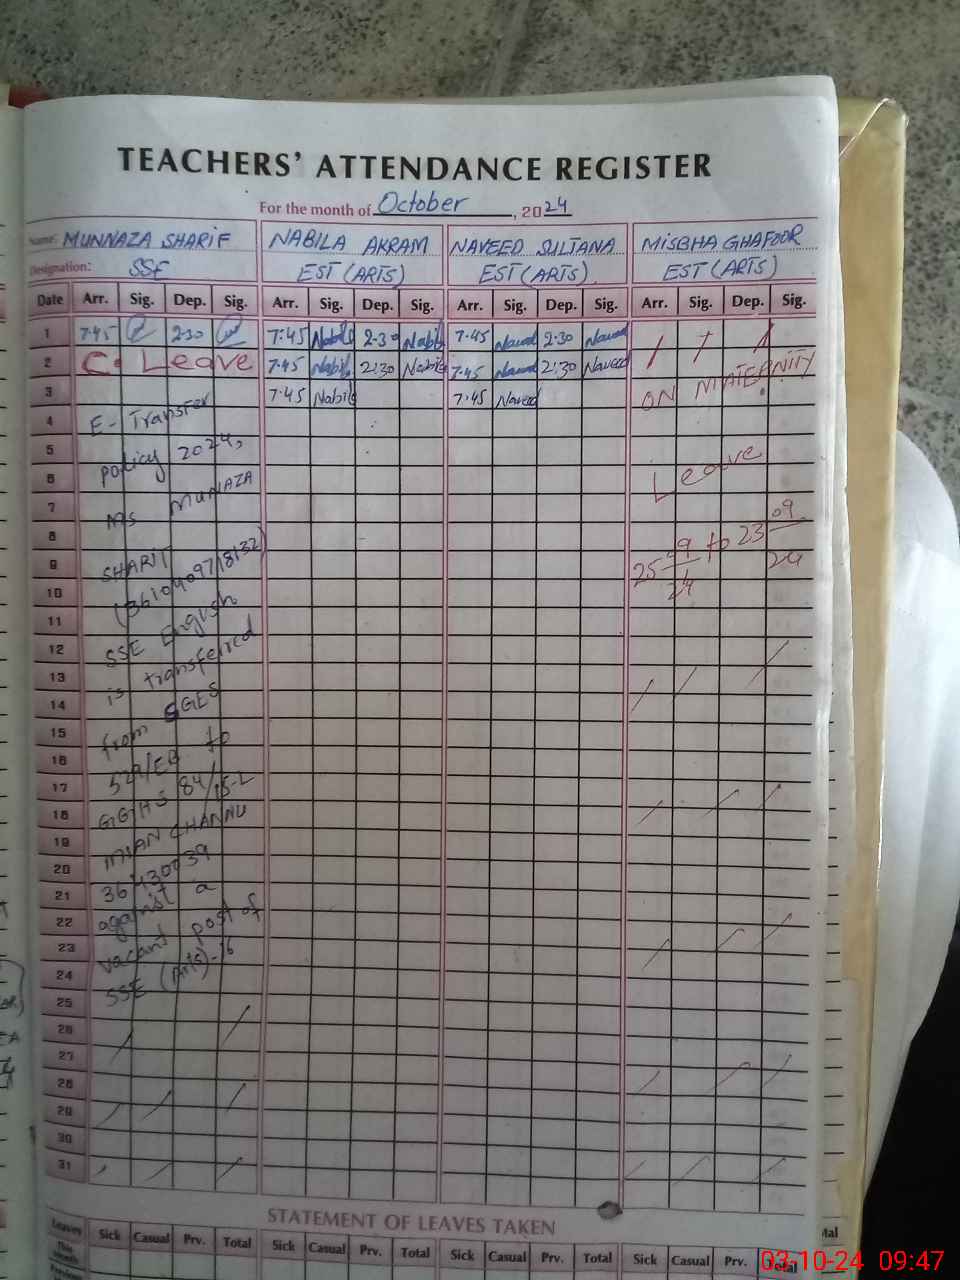 TEACHERS' ATTENDANCE REGISTER
For the month of October, 2024
Name: MUNNAZA SHARIF NABILA AKRAM NAVEED SULTANA MISBHA GHAFOOR
Designation: SSE EST (ARTS) EST (ARTS) EST (ARTS)
Date Arr. Sig. Dep. Sig. Arr. Sig. Dep. Sig. Arr. Sig. Dep. Sig. Arr. Sig. Dep. Sig.
1 7:45 2:30 7:45 Nabila 2:30 Nabila 7:45 Naveed 2:30 Naveed
2 C. Leave 7:45 Nabila 2:30 Nabila 7:45 Naveed 2:30 Naveed
3 7:45 Nabila 7:45 Naveed ON MATERNITY
4 E-Transfer
5 policy 2024,
6 Leave
7 Ms MUNAZA
8
9 SHARIF 25 09/24 to 23 09/24
10 (3610409718132)
11
12 SSE English
13 is transferred
14
15 from GGES
16
17 529/EB to
18 GGHS 84/15-L
19 MIAN CHANNU
20 36430039
21 against a
22
23 vacant post of
24 SSE (Arts)-16
25
26
27
28
29
30
31
STATEMENT OF LEAVES TAKEN
Leaves Sick Casual Prv. Total Sick Casual Prv. Total Sick Casual Prv. Total Sick Casual Prv. Total
This Month
03-10-24 09:47